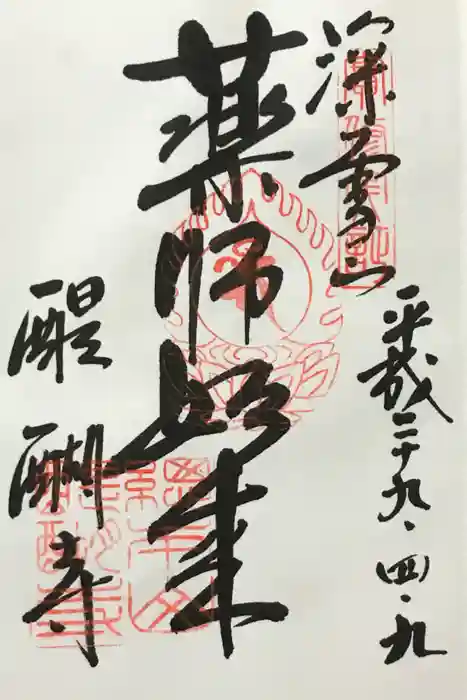 深雪山
平成二十九・四・九
薬師如来
醍醐寺